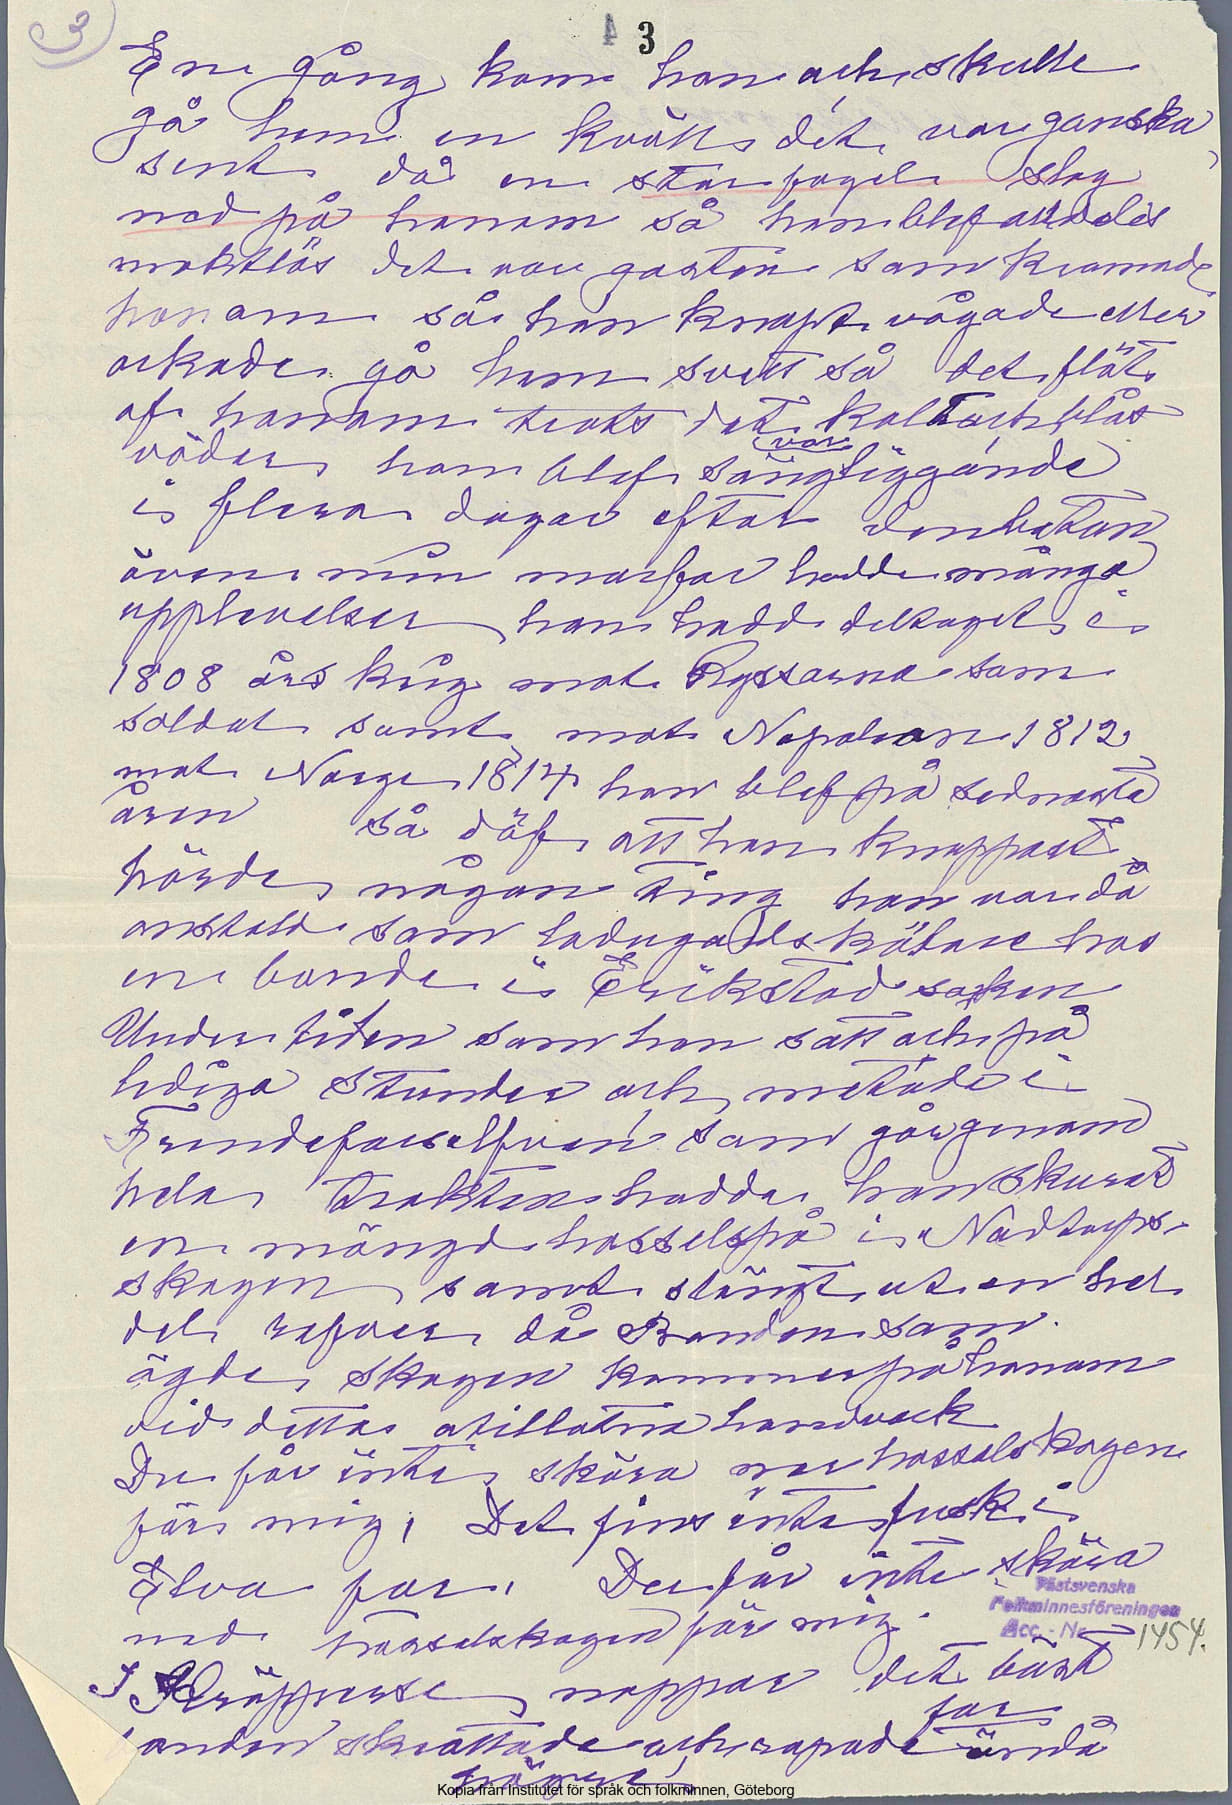 3
3
En gång kom han och skulle
gå hem en kväll det var ganska
sent då en stor fogel slog
ned på honom så han blef alldeles
maktlös det var gasten som kramade
honom så han knapt vågade eller
orkade gå hem svett så det flöt
af honom trots det var kalt och blås
väder han blef sängliggande
i flera dagar efter den betan
även min morfar hadde många
upplevelser han hadde deltaget i
1808 års krig mot Ryssarna som
soldat samt mot Napoleon 1812
mot Norge 1814 han blef på sednaste
åren så döf att han knappast
hörde någon ting han var då
anstald som ladugårdskötare hos
en bonde i Erikstad socken
Under tiden som han satt och på
lediga stunder och metade i
Frendeforselfven som går genom
hela trakten hadde han skurit
en mängd hasselspö i Nadtorps-
skogen samt slängt ut en hel
del refvar då Bonden som
ägde skogen kommer på honom
vid detta otillåtna handverk
Du får inte skära ner hasselskogen
för mig; Det fins inte fisk i
Elva far. Du får inte skära
ned hasselskogen för mig.
I Kräppsrse nappar det bäst far
bonden skrattade och ropade ändå
högre!
Västsvenska
Folkminnesföreningen
Acc. - Nr 1454.
Kopia från Institutet för språk och folkminnen, Göteborg